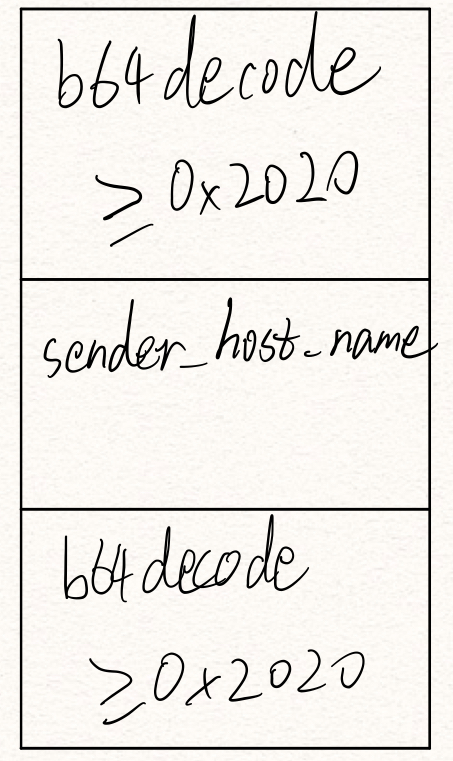 b64decode
≥0x2020
sender_host_name
b64decode
≥0x2020